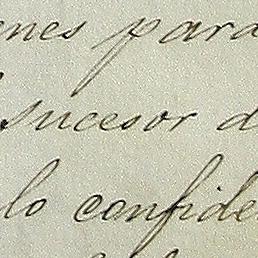 enes para
sucesor d
lo confide